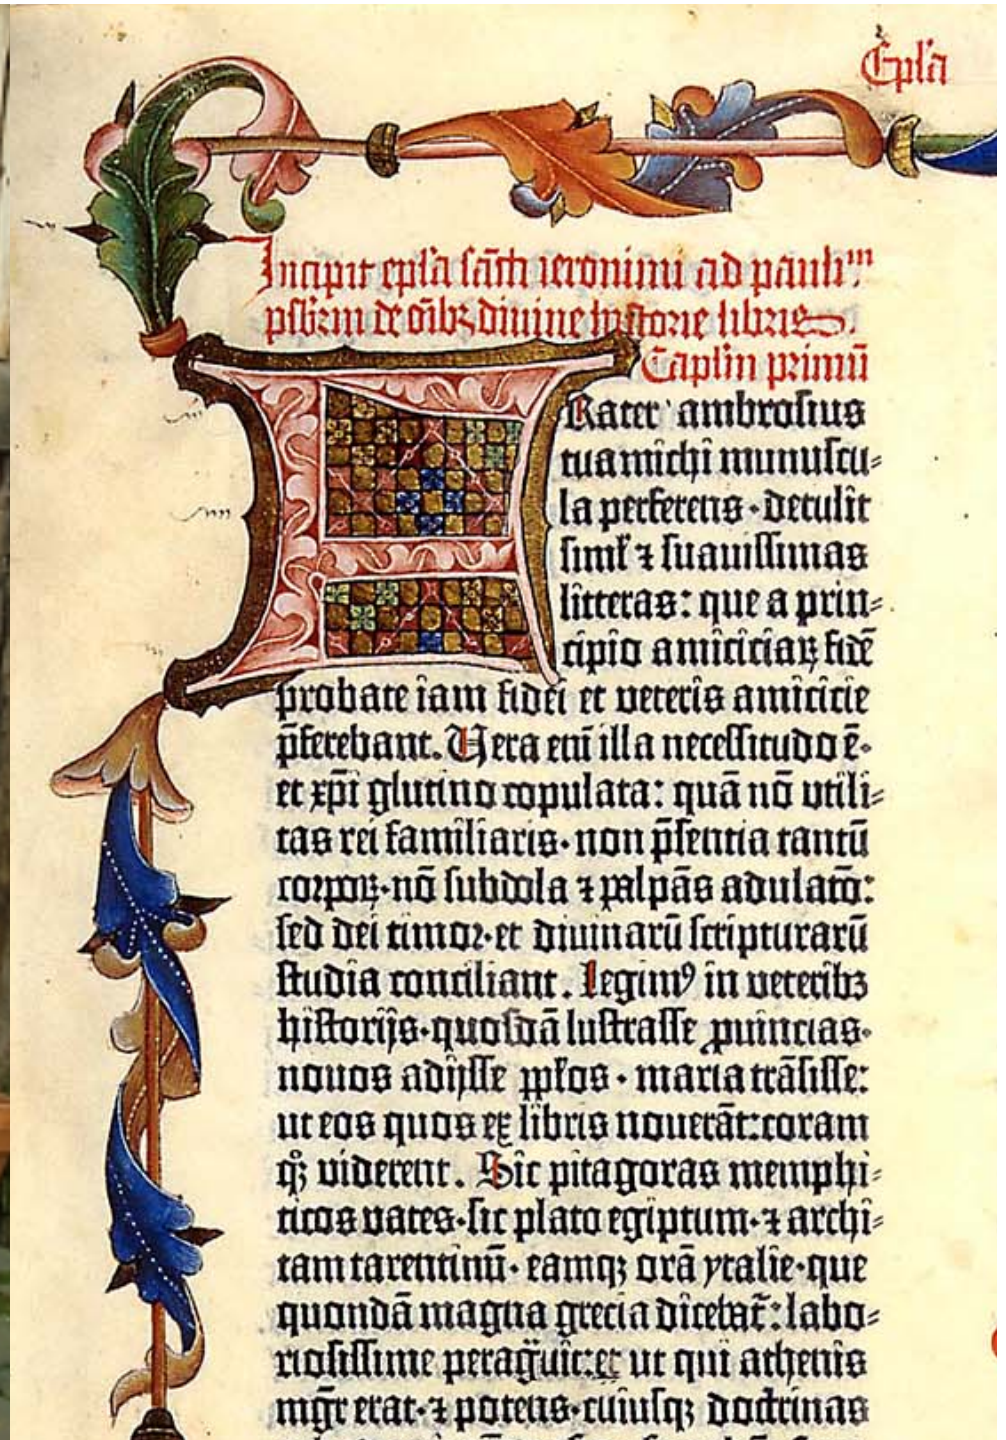 Epl̄a
Incipit epl̄a sāc̄ti ieronimi ad pauliᵐ
pſbr̄m de oībꝫ divine historie libris.
Capl̄m primū
FRater ambroſius
tua michi munuſcu⸗
la perferens·detulit
simĺ ⁊ ſuauiſſimas
litteras: que a prin⸗
cipio amiciciaꝝ fidē
probate iam fidei et veteris amicicie
p̄ferebant. Uera em̄ illa neceſſitudo ē·
et xp̄i glutino copulata: quā nō utili⸗
tas rei familiaris·non p̄ſentia tantū
corpoꝝ·nō ſubdola ⁊ palpās adulatō:
ſed dei timor·et diuinarū ſcripturarū
ſtudia conciliant. Legimꝰ in veteribꝫ
hiſtorijs·quoſdā luſtraſſe ꝓuincias·
nouos adijſſe pp̄los·maria trāſiſſe:
ut eos quos ex libris nouerāt: coram
qꝫ viderent. Sic pitagoras memphi⸗
ticos vates·ſic plato egiptum·⁊ archi⸗
tam tarentinū·eamqꝫ orā ytalie·que
quondā magna grecia dicebat̄: labo⸗
rioſiſſime peragᷓuit: et ut qui athenis
mgr̄ erat·⁊ potens·cuiuſqꝫ doctrinas